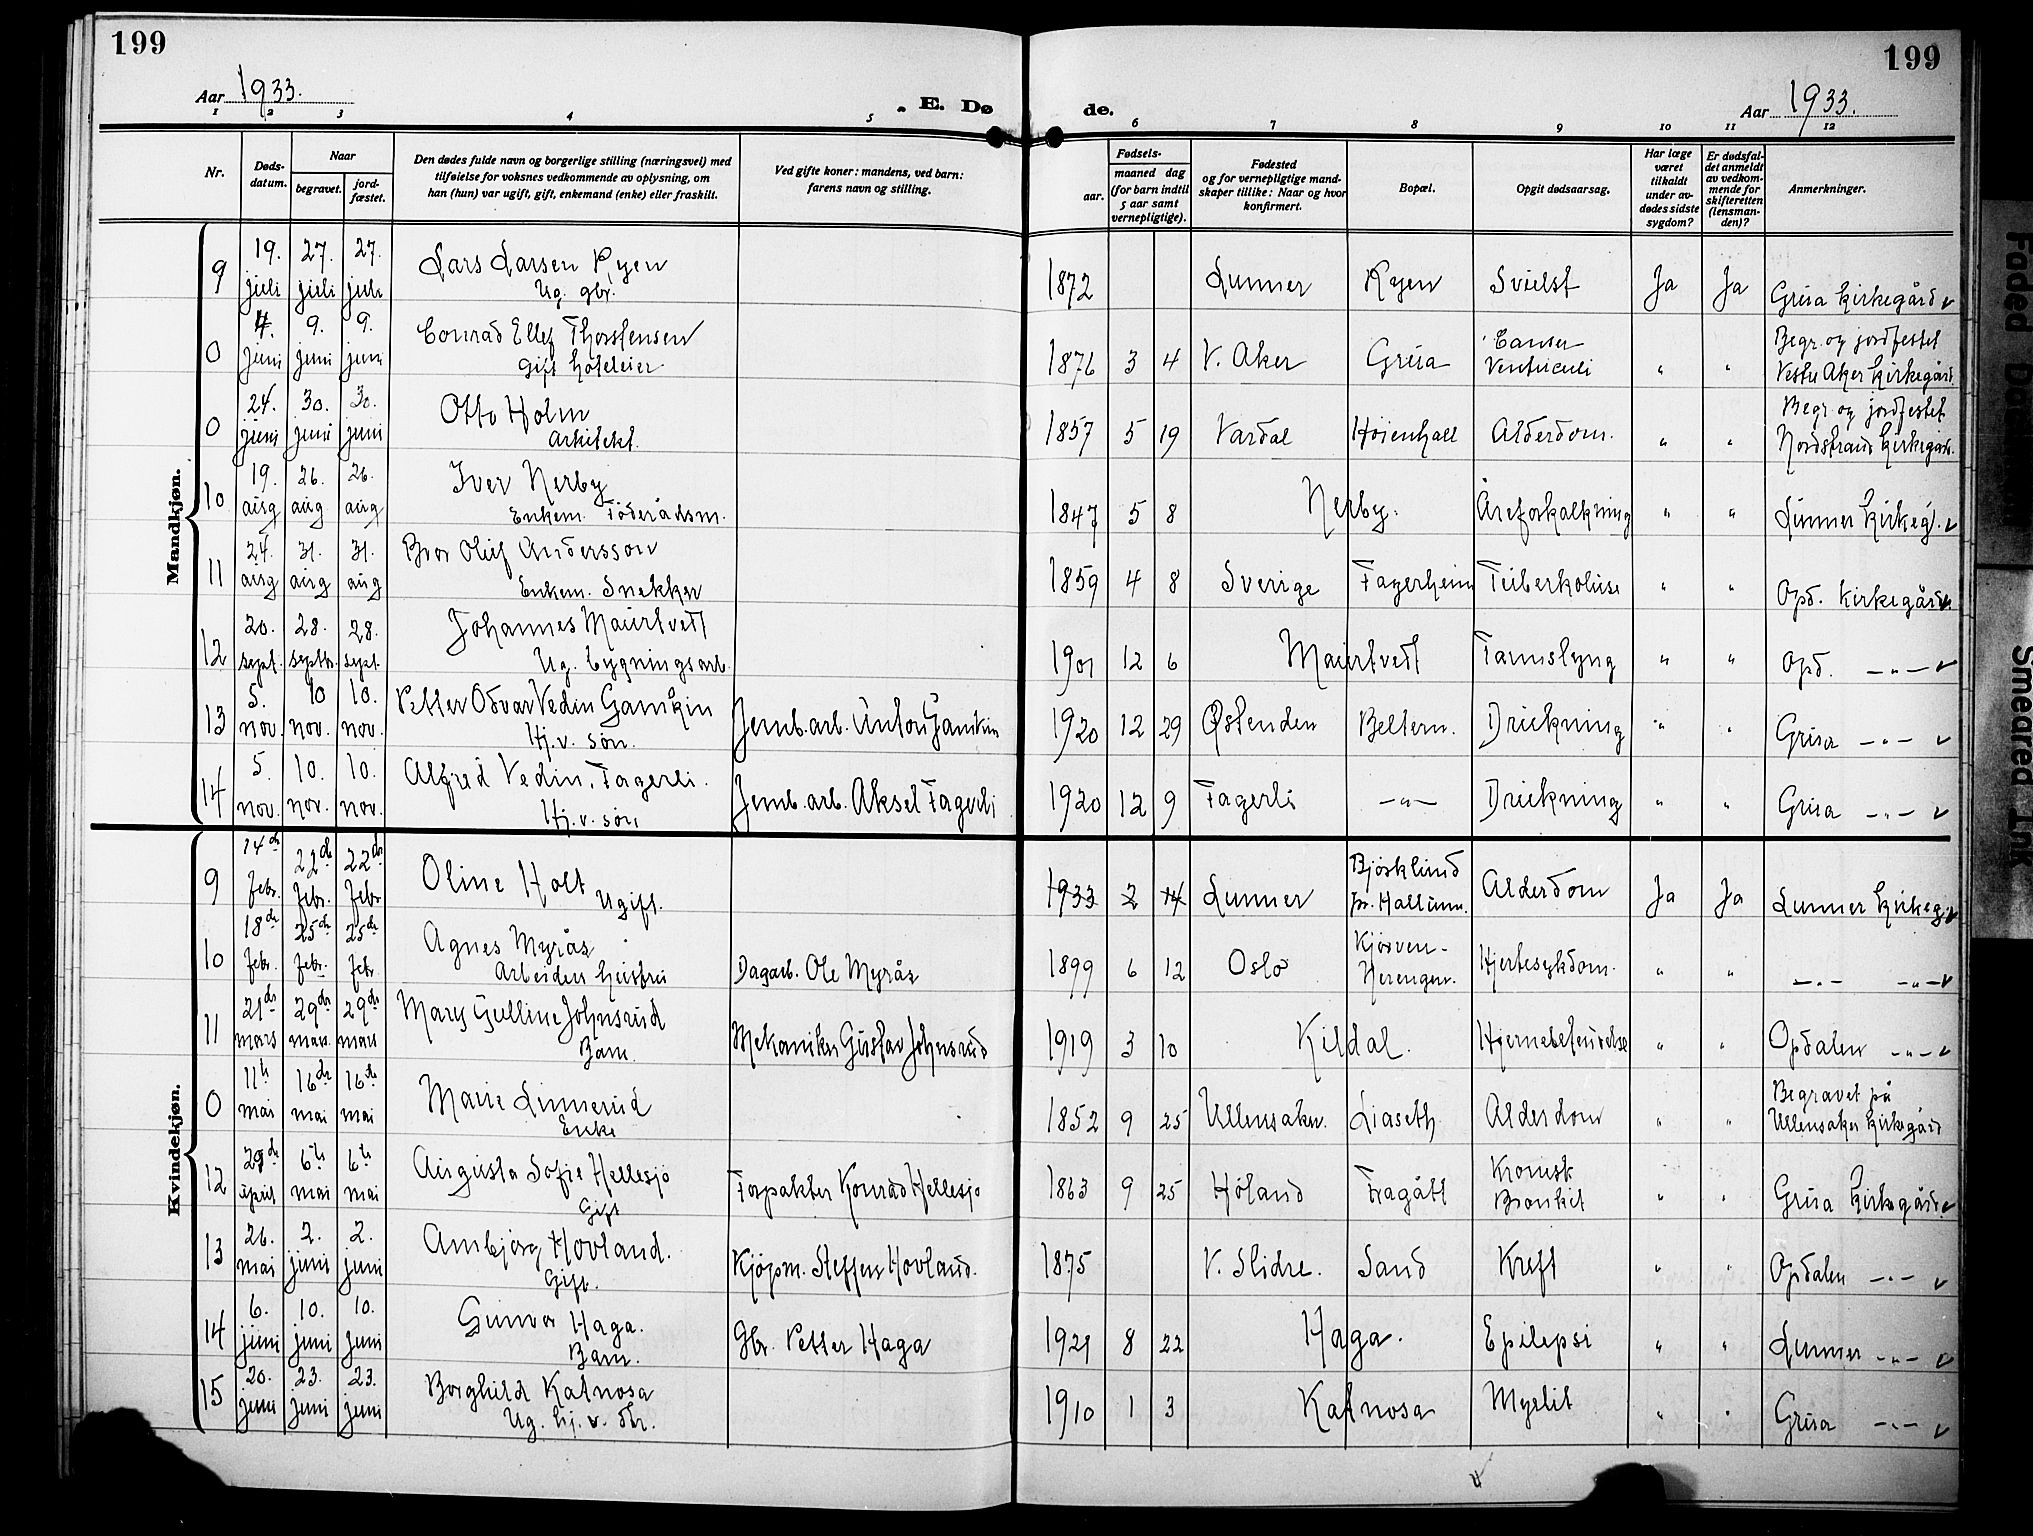 199
199
Aar 1933.
E. Dø
de.
Aar 1933.
1 2 3 4 5 6 7 8 9 10 11 12
Nr.
Døds-
datum.
Naar
begravet.
jord-
fæstet.
Den dødes fulde navn og borgerlige stilling (næringsvei) med
tilføielse for voksnes vedkommende av oplysning, om
han (hun) var ugift, gift, enkemand (enke) eller fraskilt.
Ved gifte koner: mandens, ved barn:
farens navn og stilling.
Fødsels-
aar.
maaned dag
(for barn indtil
5 aar samt
vernepligtige).
Fødested
og for vernepligtige mand-
skaper tillike: Naar og hvor
konfirmert.
Bopæl.
Opgit dødsaarsag.
Har læge
været
tilkaldt
under av-
dødes sidste
sygdom?
Er dødsfal-
det anmeldt
av vedkom-
mende for
skifteretten
(lensman-
den)?
Anmerkninger.
Mandkjøn.
9 19. juli 27. juli 27. juli Lars Larsen Ryen 1872 Lunner Ryen Ja Ja Grua Kirkegård
Ug. gbr.
0 4. juni 9. juni 9. juni Conrad Ellef Thorstensen 1876 3 4 V. Aker Grua Cancer Ventriculi " " Begr. og jordfestet
Gift hoteleier Vestre Aker Kirkegård
0 24. juni 30. juni 30. juni Otto Holm 1857 5 19 Vardal Høienhall Alderdom. " " Begr. og jordfestet
Arkitekt. Nordstrand Kirkegård.
10 19. aug 26. aug 26. aug Iver Nerby 1847 5 8 Nerby. Åreforkalkning " " Lunner Kirkeg.
Enkem. Föderådsm.
11 24. aug 31. aug 31. aug Oluf Andersson 1859 4 8 Sverige Fagerheim Tuberkoluse " " Opd. Kirkegård
Enkem. Snekker
12 20. sept. 28. septbr. 28. sept Johannes 1901 12 6 " " Opd. -"-
Ug. bygningsarb.
13 5. nov. 10 nov. 10. nov. Petter Odvar Vedin Gamkin Jernb.arb. Anton Gamkin 1920 12 29 Østenden Drukning " " Grua -"-
Hj.v. søn.
14 5. nov. 10. nov. 10. nov. Alfred Vedin. Fagerli. Jernb.arb. Aksel Fagerli 1920 12 9 Fagerli -"- Drukning " " Grua -"-
Hj.v. søn
Kvindekjøn.
9 14de febr. 22de febr. 22de febr Oline Holt 1933 2 14 Lunner Bjørklund pr. Hallum. Alderdom Ja Ja Lunner Kirkeg.
Ugift.
10 18de febr. 25de febr. 25de febr Agnes Myrås Dagarb. Ole Myrås 1899 6 12 Oslo Hjertesykdom. " " -"- -"-
Arbeiders hustru
11 21de mars 29de mars 29de mars Mary Gulline Johnsrud Mekaniker Gustav Johnsrud 1919 3 10 Kildal. Hjernebetendelse " " Opdalen -"-
Barn.
0 11te mai 16de mai 16de mai Marie Linnerud 1852 9 25 Ullensaker. Liaseth Alderdom " " Begravet på
Enke Ullensaker Kirkegård
12 april 6te mai 6te mai Augusta Sofie Hellesjø Forpakter Konrad Hellesjø 1863 9 25 Høland Fragått Kronisk Bronkit " " Grua Kirkegård
Gift
13 26. mai 2. juni 2. juni Ambjørg Hovland. Kjøpm. Steffen Hovland. 1875 V. Slidre. Sand Kreft " " Opdalen -"-
Gift.
14 6. juni 10. juni 10. juni Gunvor Haga. Gbr. Petter Haga 1921 8 22 Haga. Epilepsi " " Lunner -"-
Barn.
15 20. juni 23. juni 23. juni Borghild Katnosa 1910 1 3 Katnosa Myelit " " Grua -"-
Ug. hj.v. dtr.
Faded
Smeared Ink